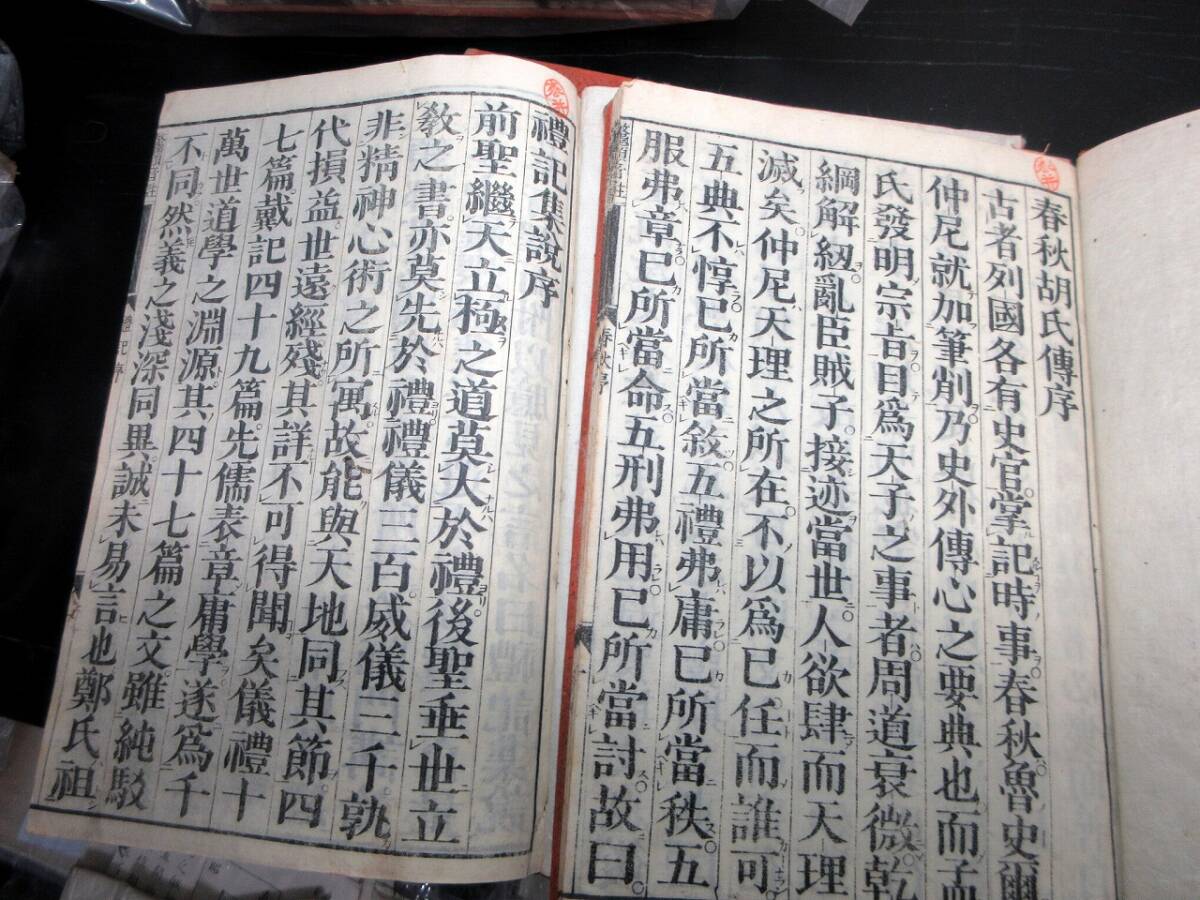 春秋胡氏傳序
古者列國各有史官掌記時事春秋魯史爾
仲尼就加筆削乃史外傳心之要典也而孟
氏發明宗旨目爲天子之事者周道衰微乾
綱解紐亂臣賊子接迹當世人欲肆而天理
滅矣仲尼天理之所在不以爲已任而誰可
五典不惇已所當敘五禮弗庸已所當秩五
服弗章已所當命五刑弗用已所當討故曰
春秋序
禮記集說序
前聖繼天立極之道莫大於禮後聖垂世立
敎之書亦莫先於禮禮儀三百威儀三千孰
非精神心術之所寓故能與天地同其節四
代損益世遠經殘其詳不可得聞矣儀禮十
七篇戴記四十九篇先儒表章庸學遂爲千
萬世道學之淵源其四十七篇之文雖純駁
不同然義之淺深同異誠未易言也鄭氏祖
禮記序